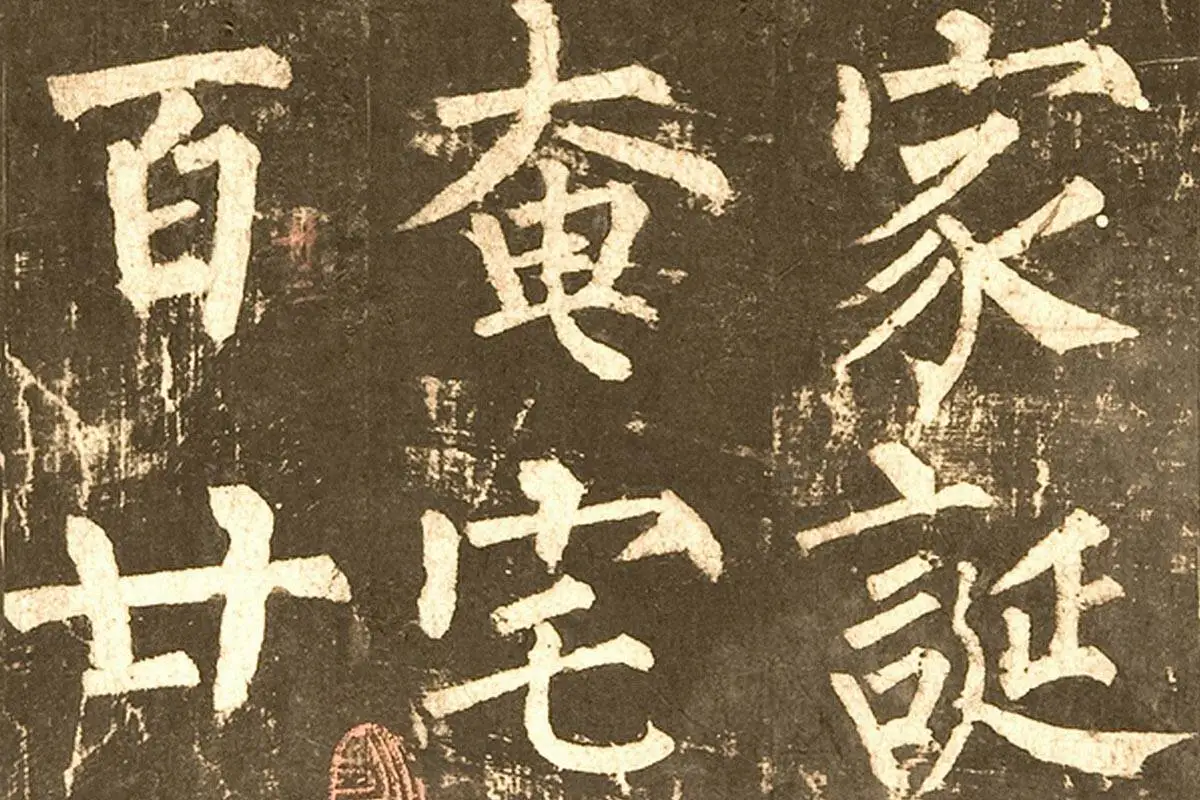 家誕
奄宅
百廿